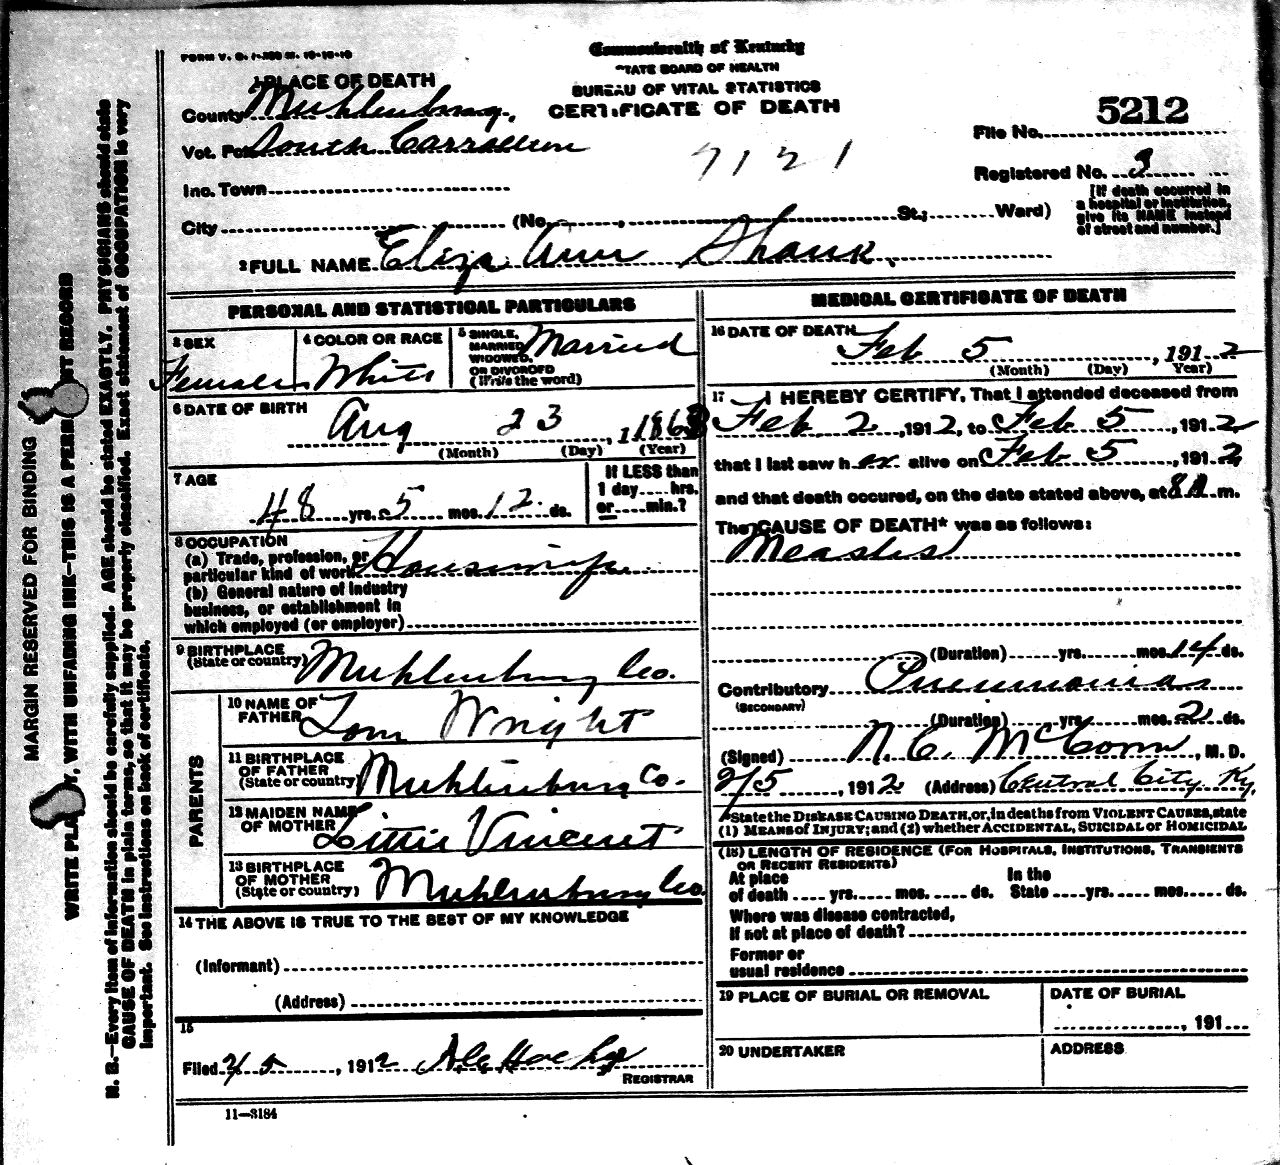 FORM V. S. 1-200 M. 10-10-10
Commonwealth of Kentucky
STATE BOARD OF HEALTH
BUREAU OF VITAL STATISTICS
CERTIFICATE OF DEATH
1 PLACE OF DEATH
County Muhlenburg.
Vot. Pct. South Carrollton
Inc. Town
City (No. , St.; Ward)
7121
File No. 5212
Registered No. 3
[If death occurred in a hospital or institution, give its NAME instead of street and number.]
2 FULL NAME Eliza Ann Shank.
PERSONAL AND STATISTICAL PARTICULARS
3 SEX Female
4 COLOR OR RACE White
5 SINGLE, MARRIED, WIDOWED, OR DIVORCED (Write the word) Married
6 DATE OF BIRTH
Aug 23, 1863
(Month) (Day) (Year)
7 AGE
48 yrs. 5 mos. 12 ds.
If LESS than 1 day.... hrs. or.... min.?
8 OCCUPATION
(a) Trade, profession, or particular kind of work Housewife
(b) General nature of industry business, or establishment in which employed (or employer)
9 BIRTHPLACE
(State or country) Muhlenburg Co.
PARENTS
10 NAME OF FATHER Tom Wright
11 BIRTHPLACE OF FATHER (State or country) Muhlenburg Co.
12 MAIDEN NAME OF MOTHER Littie Vincent
13 BIRTHPLACE OF MOTHER (State or country) Muhlenburg Co.
14 THE ABOVE IS TRUE TO THE BEST OF MY KNOWLEDGE
(Informant)
(Address)
15
Filed 2/5, 1912
REGISTRAR
11-3184
MEDICAL CERTIFICATE OF DEATH
16 DATE OF DEATH
Feb 5, 1912
(Month) (Day) (Year)
17 I HEREBY CERTIFY, That I attended deceased from
Feb 2, 1912, to Feb 5, 1912
that I last saw her alive on Feb 5, 1912,
and that death occured, on the date stated above, at 8 A m.
The CAUSE OF DEATH* was as follows:
Measles
(Duration) yrs. mos. 14 ds.
Contributory Pneumonia
(SECONDARY)
(Duration) yrs. mos. 2 ds.
(Signed) N. C. McConn, M. D.
2/5, 1912 (Address) Central City Ky.
*State the DISEASE CAUSING DEATH, or, in deaths from VIOLENT CAUSES, state
(1) MEANS of INJURY; and (2) whether ACCIDENTAL, SUICIDAL or HOMICIDAL
(18) LENGTH OF RESIDENCE (FOR HOSPITALS, INSTITUTIONS, TRANSIENTS
OR RECENT RESIDENTS)
At place of death .... yrs. .... mos. .... ds. In the State .... yrs. .... mos. .... ds.
Where was disease contracted,
If not at place of death?
Former or
usual residence
19 PLACE OF BURIAL OR REMOVAL
DATE OF BURIAL
, 191
20 UNDERTAKER
ADDRESS
MARGIN RESERVED FOR BINDING
WRITE PLAINLY, WITH UNFADING INK—THIS IS A PERMANENT RECORD
N. B.—Every item of information should be carefully supplied. AGE should be stated EXACTLY. PHYSICIANS should state
CAUSE OF DEATH in plain terms, so that it may be properly classified. Exact statement of OCCUPATION is very
important. See instructions on back of certificate.